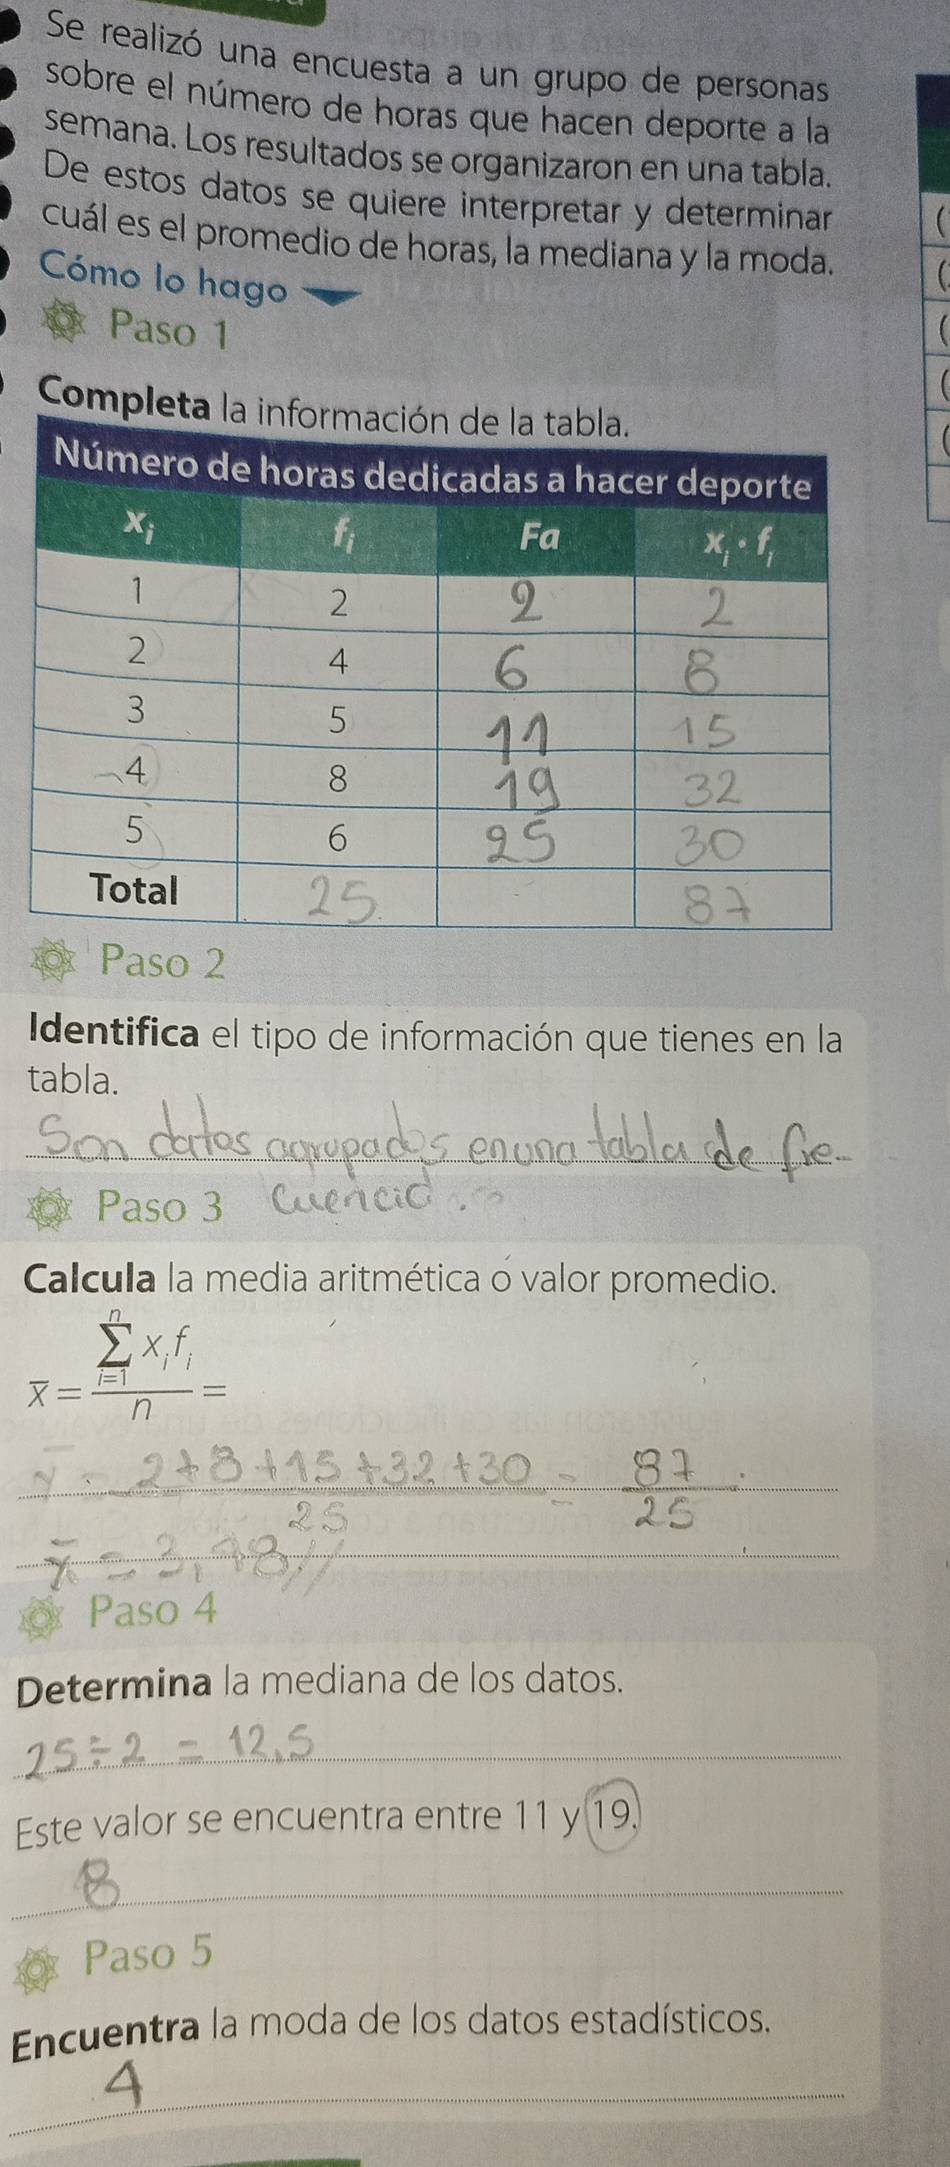 Se realizó una encuesta a un grupo de personas
sobre el número de horas que hacen deporte a la
semana. Los resultados se organizaron en una tabla.
De estos datos se quiere interpretar y determinar
cuál es el promedio de horas, la mediana y la moda.
Cómo lo hago
Paso 1
Completa la información de la tabla.
Número de horas dedicadas a hacer deporte
xᵢ fᵢ Fa xᵢ · fᵢ
1 2 2 2
2 4 6 8
3 5 11 15
4 8 19 32
5 6 25 30
Total 25 87
Paso 2
Identifica el tipo de información que tienes en la
tabla.
Son datos agrupados en una tabla de fre-
Paso 3 cuencia.
Calcula la media aritmética o valor promedio.
x̄ = ∑ⁿᵢ₌₁ xᵢfᵢ / n =
x̄ = 2+8+15+32+30 / 25 = 87 / 25
x̄ = 3,48//
Paso 4
Determina la mediana de los datos.
25 ÷ 2 = 12,5
Este valor se encuentra entre 11 y 19.
8
Paso 5
Encuentra la moda de los datos estadísticos.
4